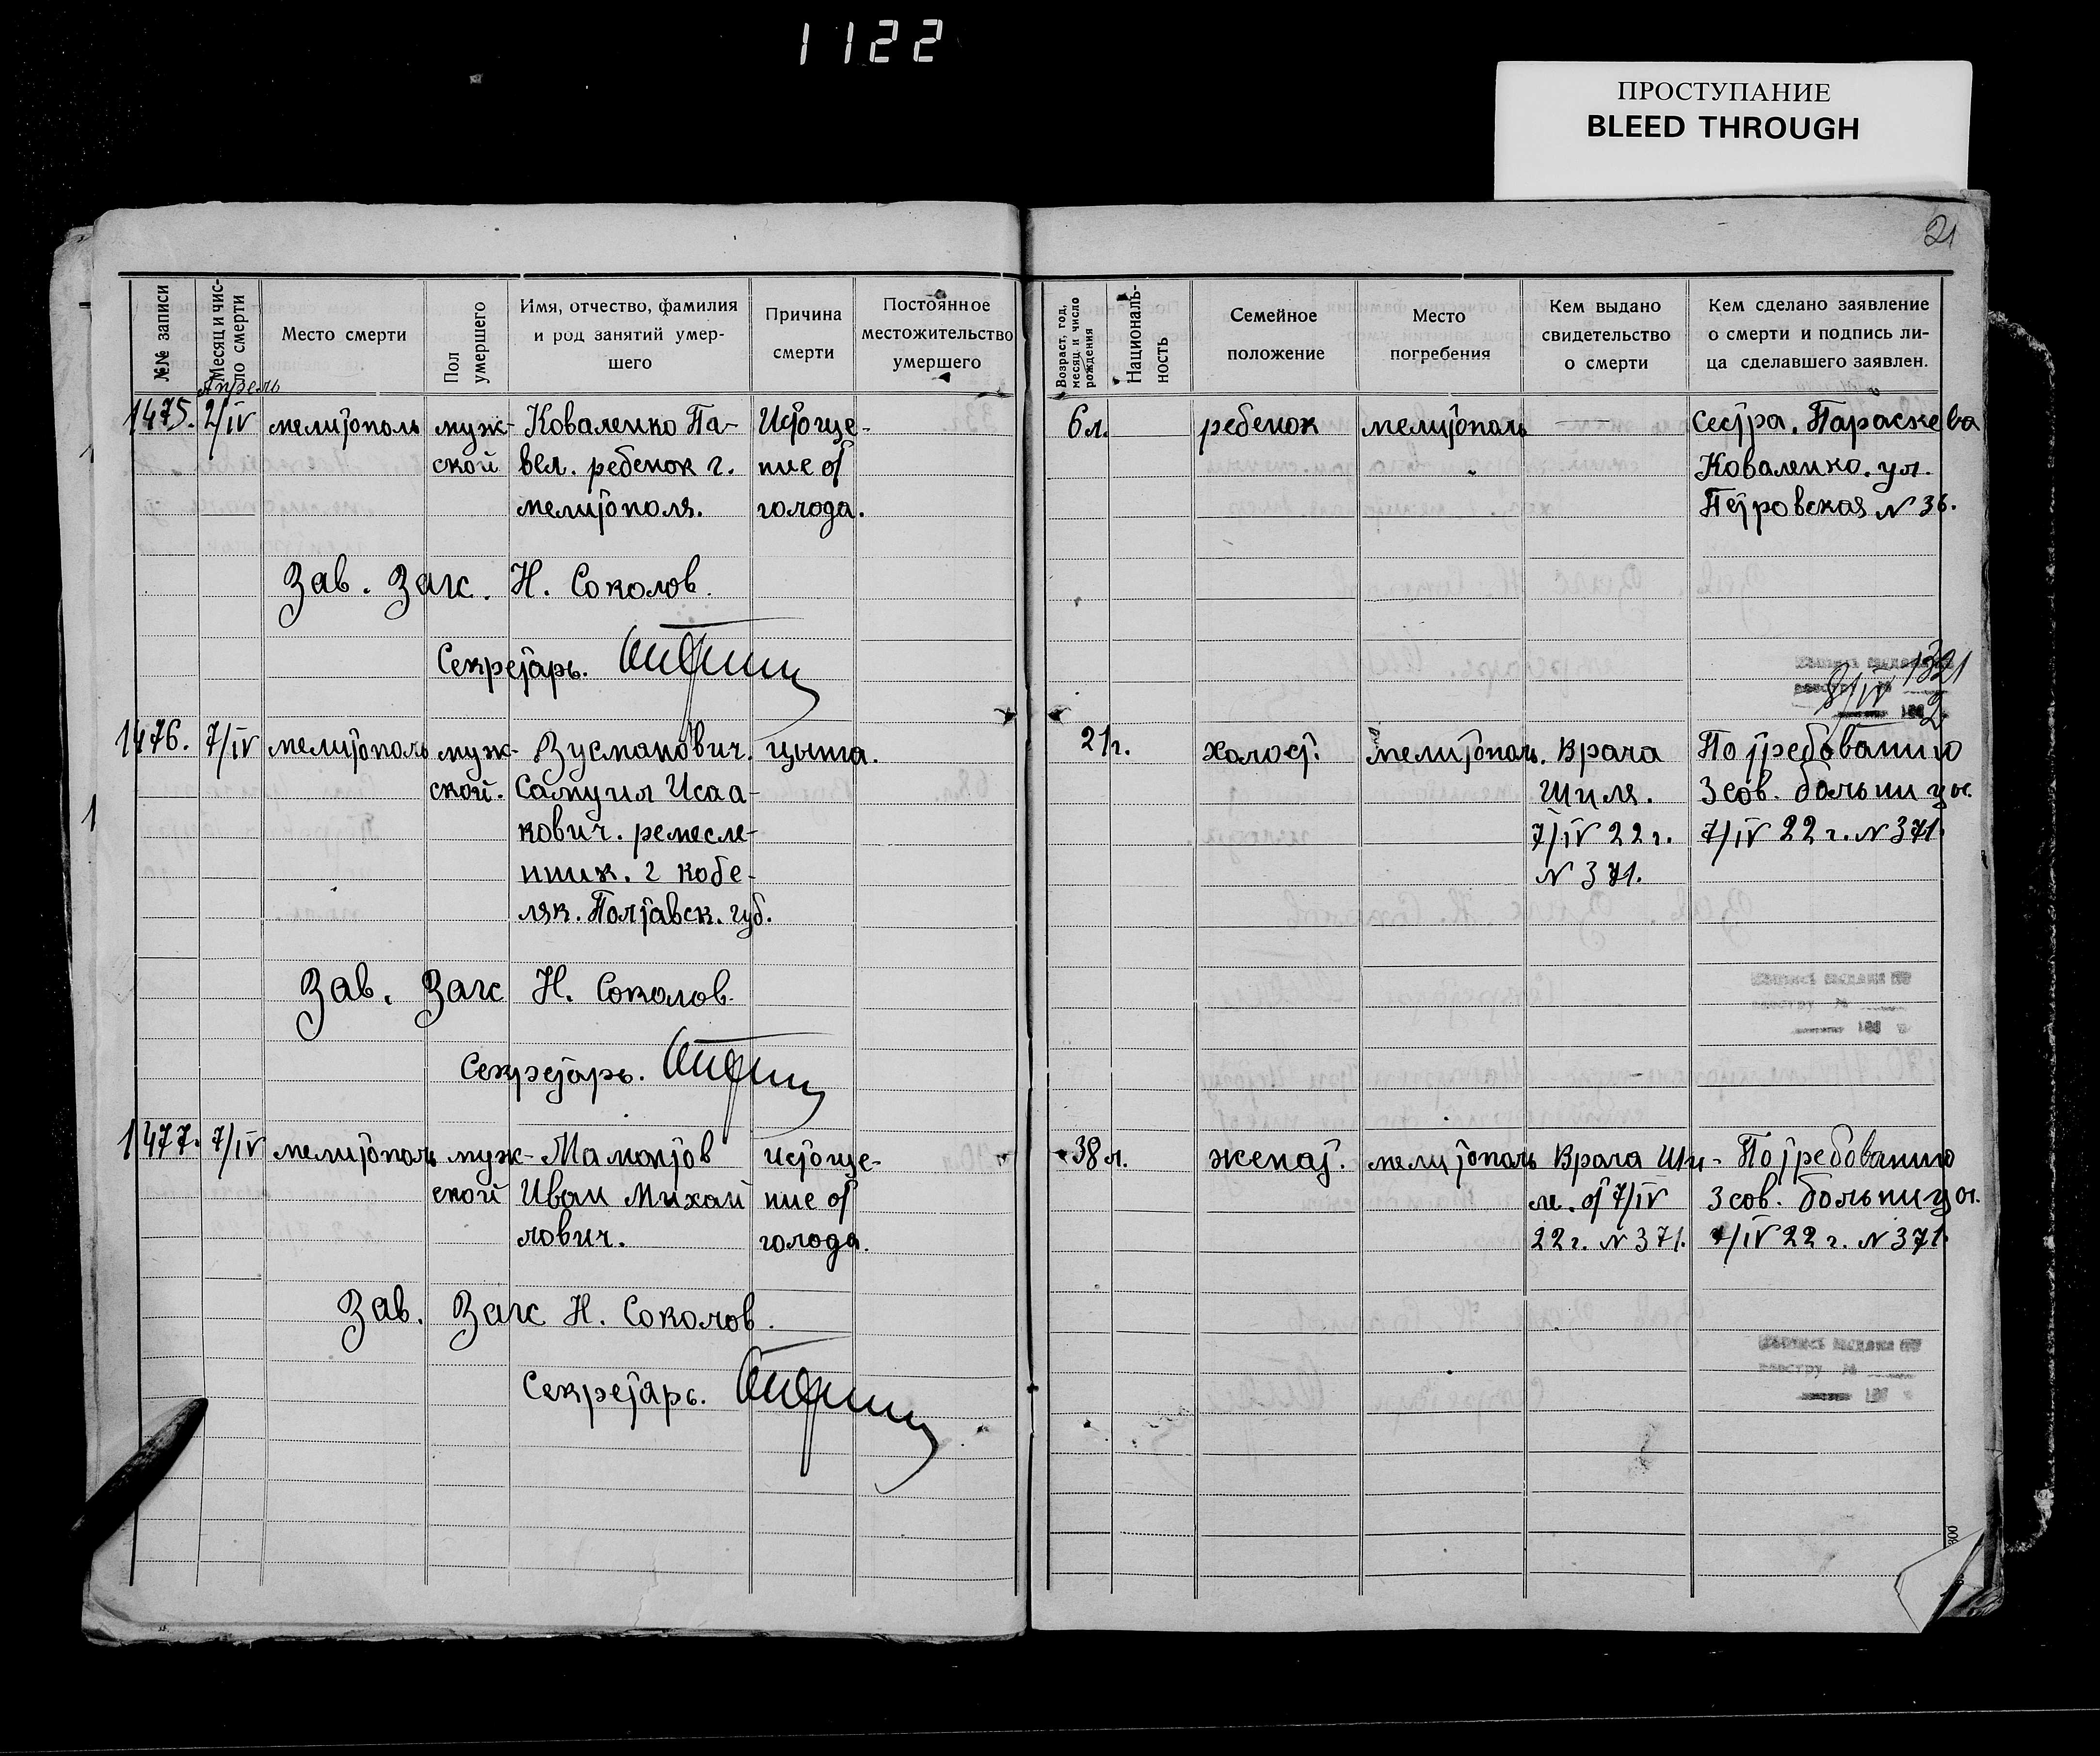 1122
ПРОСТУПАНИЕ
BLEED THROUGH
21
№№ записи
Месяц и чис-
ло смерти
Место смерти
Пол
умершего
Имя, отчество, фамилия
и род занятий умер-
шего
Причина
смерти
Постоянное
местожительство
умершего
Возраст, год,
месяц и число
рождения
Националь-
ность
Семейное
положение
Место
погребения
Кем выдано
свидетельство
о смерти
Кем сделано заявление
о смерти и подпись ли-
ца сделавшего заявлен.
Апрель
1475. 2/IV мелитополь муж- Коваленко Па- Истоще- 6 л. ребенок мелитополь — Сестра. Параскева
ской вел. ребенок г. ние от Коваленко. ул.
мелитополя. голода. Петровская N 36.
Зав. Загс. Н. Соколов.
Секретарь.
1321
8/IV
2
1476. 7/IV мелитополь муж- Зусманович. цынга. 21 г. холост. мелитополь. Врача По требованию
ской. Самуил Исаа- Шиля. 3 сов. больницы.
кович. ремесле- 7/IV 22 г. 7/IV 22 г. N 371.
нник. г кобе- N 371.
ляк. Полтавск. губ.
Зав. Загс Н. Соколов.
Секретарь.
1477. 7/IV мелитополь муж- Мамонтов истоще- 38 л. женат. мелитополь Врача Ши- По требованию
ской Иван Михай ние от ля. от 7/IV 3 сов. больницы.
лович. голода. 22 г. N 371. 7/IV 22 г. N 371.
Зав. Загс Н. Соколов.
Секретарь.